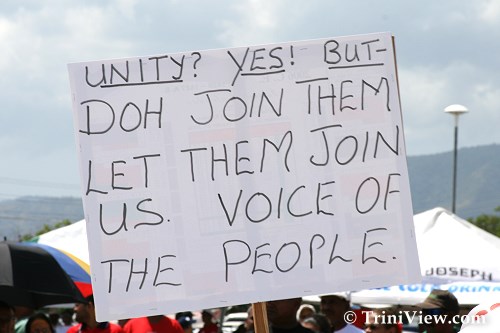 UNITY? YES! BUT-
DOH JOIN THEM
LET THEM JOIN
US. VOICE OF
THE PEOPLE.
JOSEPH
© TriniView.com